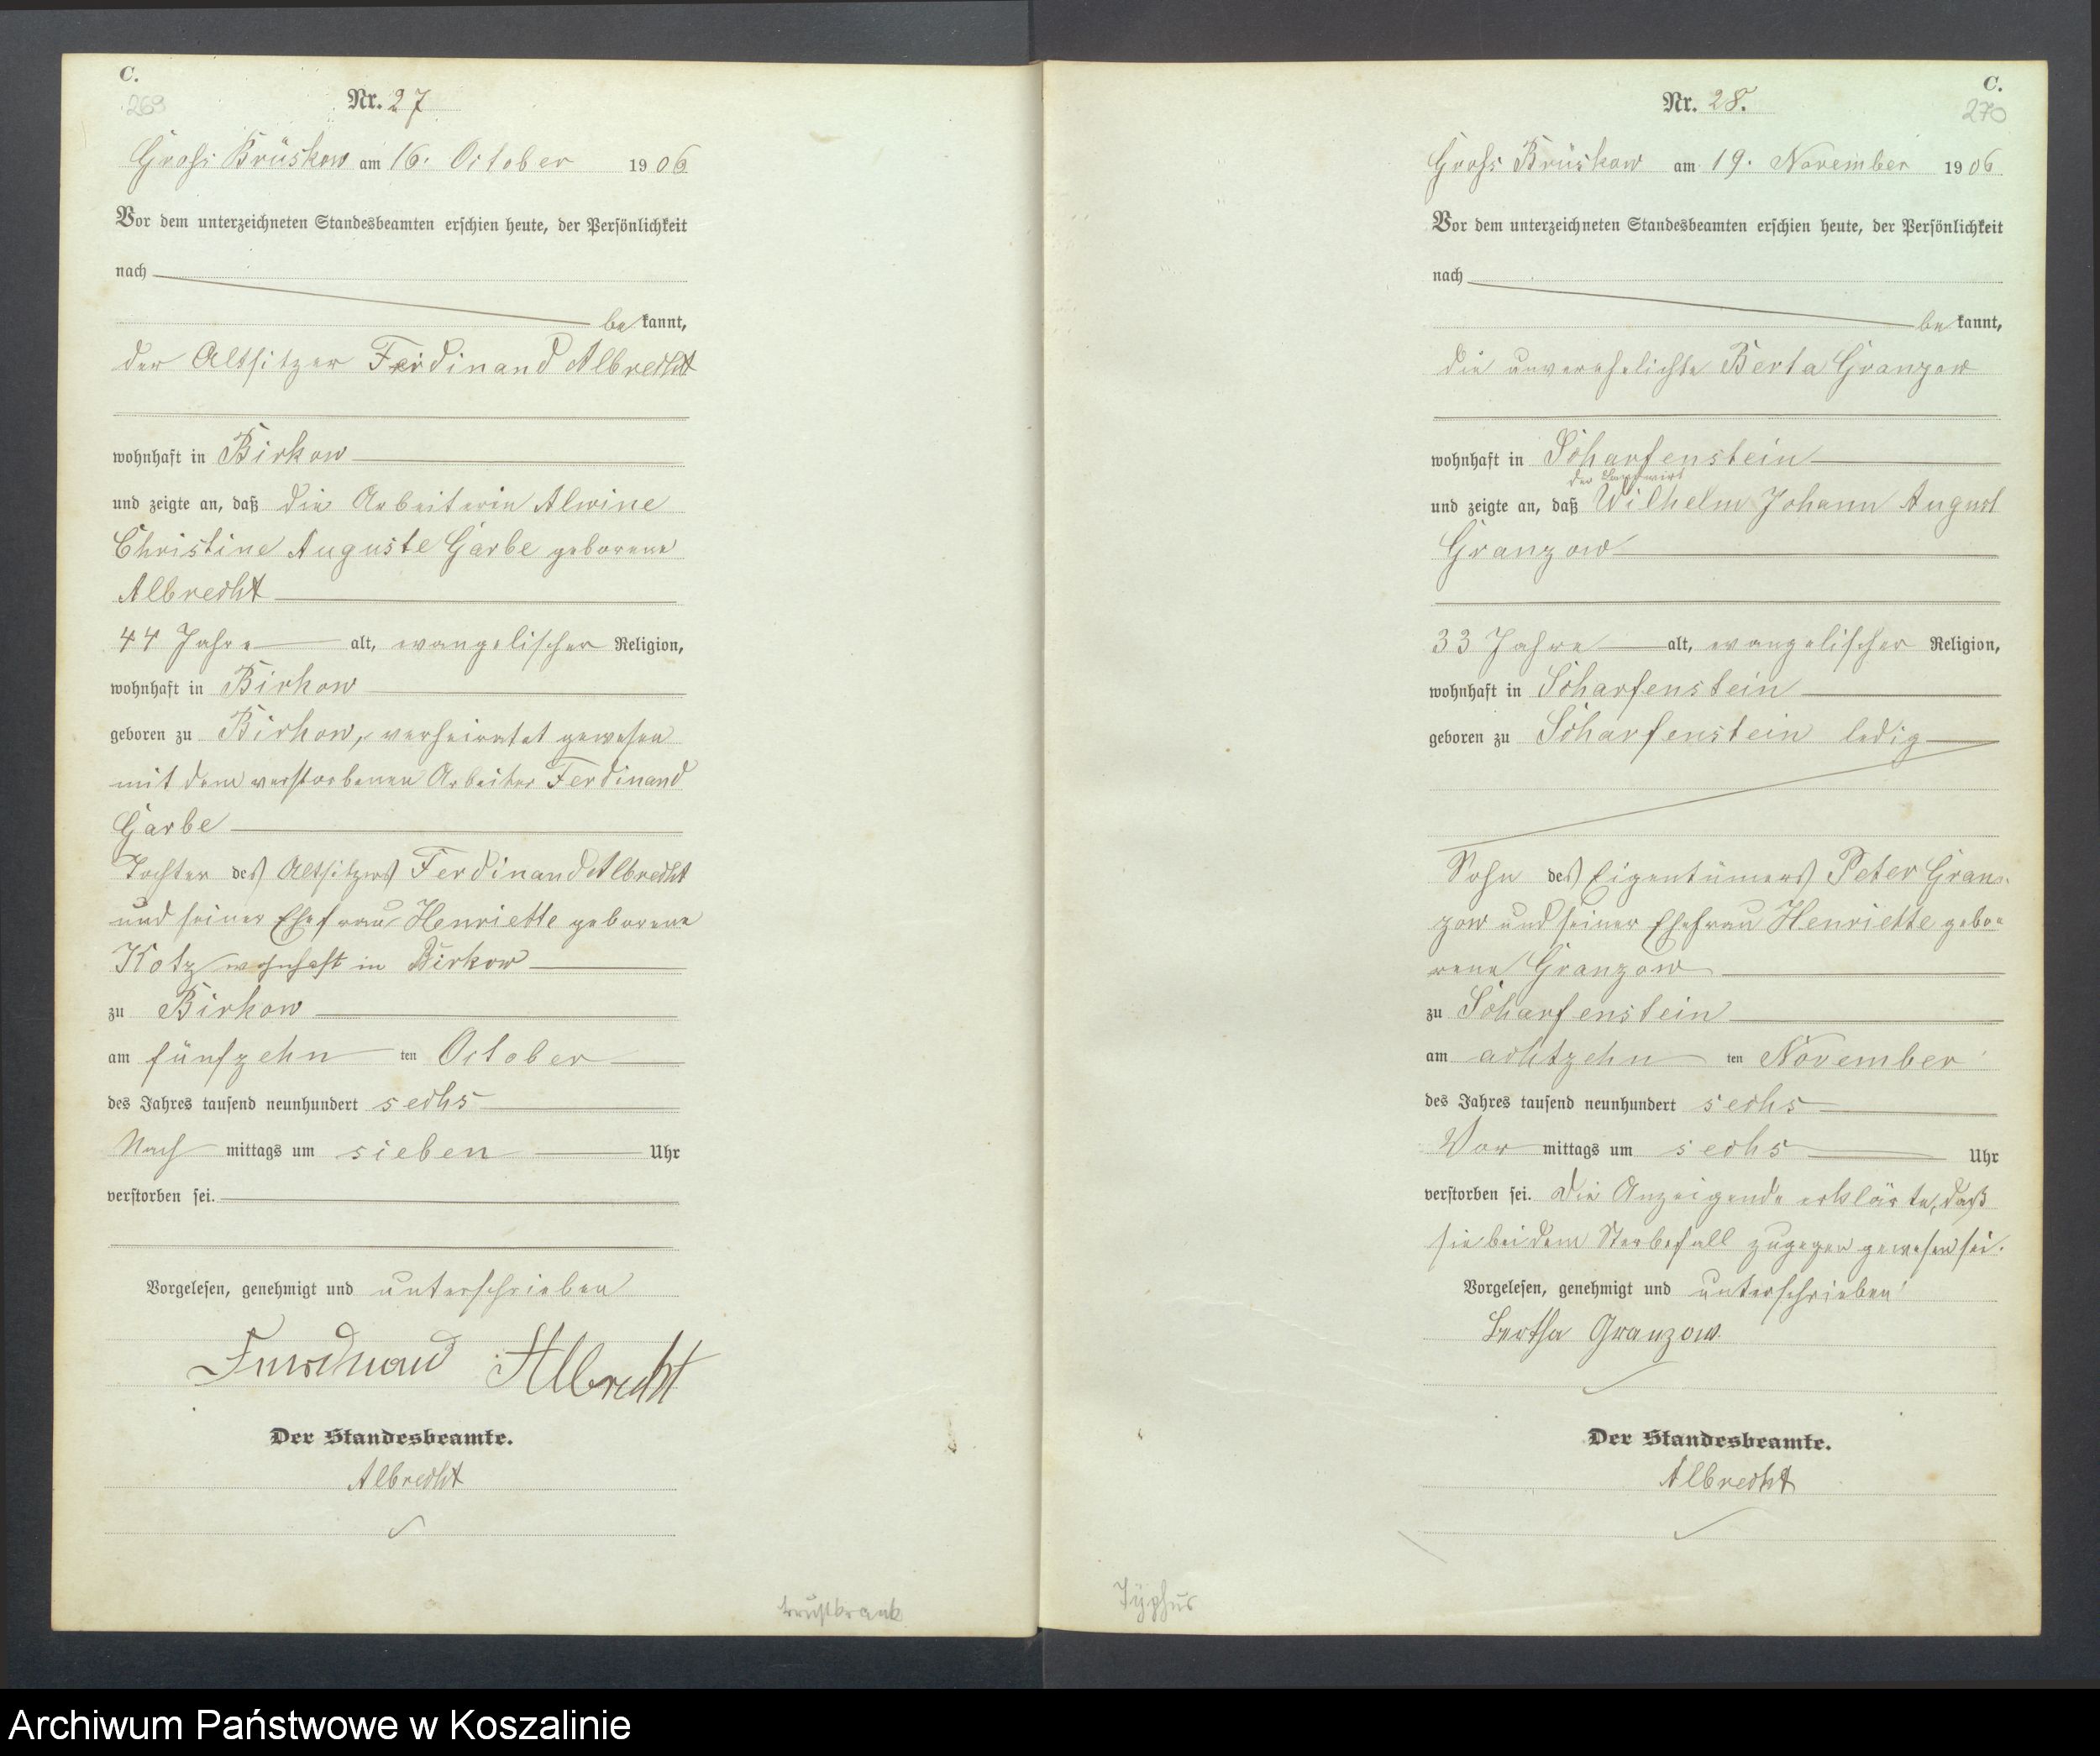 C.
269
Nr. 27
Gross Brüskow am 16. October 1906
Vor dem unterzeichneten Standesbeamten erschien heute, der Persönlichkeit
nach
be kannt,
der Altsitzer Ferdinand Albrecht
wohnhaft in Birkow
und zeigte an, daß die Arbeiterin Alwine
Christine Auguste Garbe geborene
Albrecht
44 Jahre alt, evangelischer Religion,
wohnhaft in Birkow
geboren zu Birkow, verheiratet gewesen
mit dem verstorbenen Arbeiter Ferdinand
Garbe
Tochter des Altsitzers Ferdinand Albrecht
und seiner Ehefrau Henriette geborene
Kotz wohnhaft in Birkow
zu Birkow
am fünfzehn ten October
des Jahres tausend neunhundert sechs
Nach mittags um sieben Uhr
verstorben sei.
Vorgelesen, genehmigt und unterschrieben
Ferdinand Albrecht
Der Standesbeamte.
Albrecht
brustkrank
C.
270
Nr. 28.
Gross Brüskow am 19. November 1906
Vor dem unterzeichneten Standesbeamten erschien heute, der Persönlichkeit
nach
be kannt,
die unverehelichte Berta Granzow
wohnhaft in Scharfenstein
der Landwirt
und zeigte an, daß Wilhelm Johann August
Granzow
33 Jahre alt, evangelischer Religion,
wohnhaft in Scharfenstein
geboren zu Scharfenstein ledig
Sohn des Eigentümers Peter Gran-
zow und seiner Ehefrau Henriette gebo-
rene Granzow
zu Scharfenstein
am achtzehn ten November
des Jahres tausend neunhundert sechs
Vor mittags um sechs Uhr
verstorben sei. Die Anzeigende erklärte, daß
sie bei dem Sterbefall zugegen gewesen sei.
Vorgelesen, genehmigt und unterschrieben
Bertha Granzow
Der Standesbeamte.
Albrecht
Typhus
Archiwum Państwowe w Koszalinie